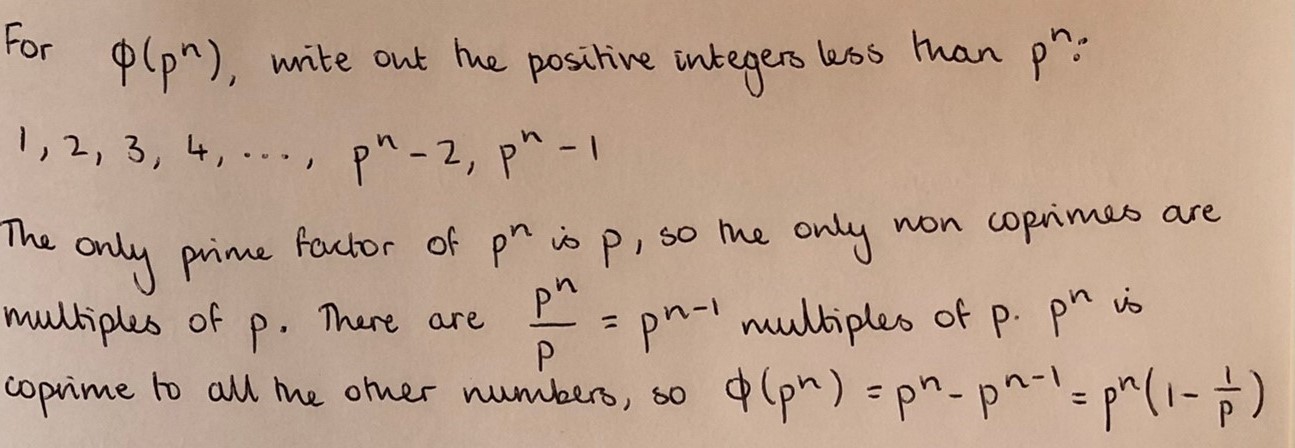 For ϕ(pⁿ), write out the positive integers less than pⁿ:
1, 2, 3, 4, ..., pⁿ - 2, pⁿ - 1
The only prime factor of pⁿ is p, so the only non coprimes are
multiples of p. There are pⁿ/p = pⁿ⁻¹ multiples of p. pⁿ is
coprime to all the other numbers, so ϕ(pⁿ) = pⁿ - pⁿ⁻¹ = pⁿ(1 - 1/p)